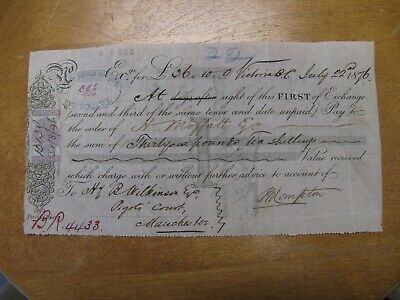 22
Exc. for £36.10.0 Victoria B.C July 22nd 1876
At days after sight of this FIRST of Exchange
(second and third of the same tenor and date unpaid) Pay to
the order of Moffatt Esq
the sum of Thirty six pounds Ten shillings
Value received
which charge with or without further advice to account of
To A R Wilkinson Esq
Court,
Manchester
B/R. 4433